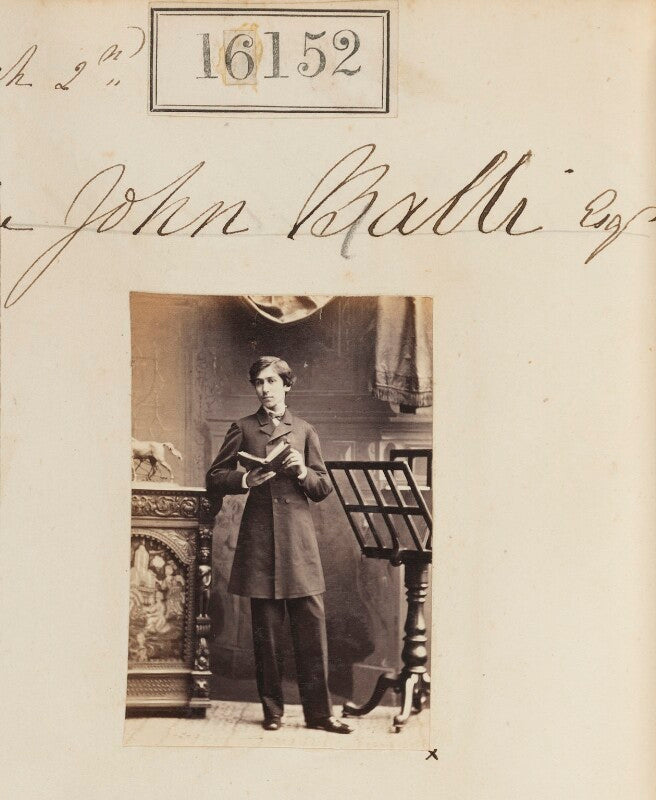 2nd
16152
John Balli Esqr